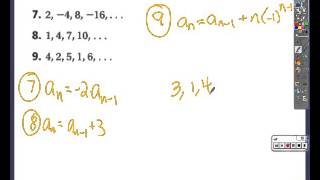 7. 2, −4, 8, −16, . . .
8. 1, 4, 7, 10, . . .
9. 4, 2, 5, 1, 6, . . .
⑨ aₙ = aₙ₋₁ + n(-1)ⁿ⁻¹
⑦ aₙ = -2aₙ₋₁
3, 1, 4
⑧ aₙ = aₙ₋₁ + 3